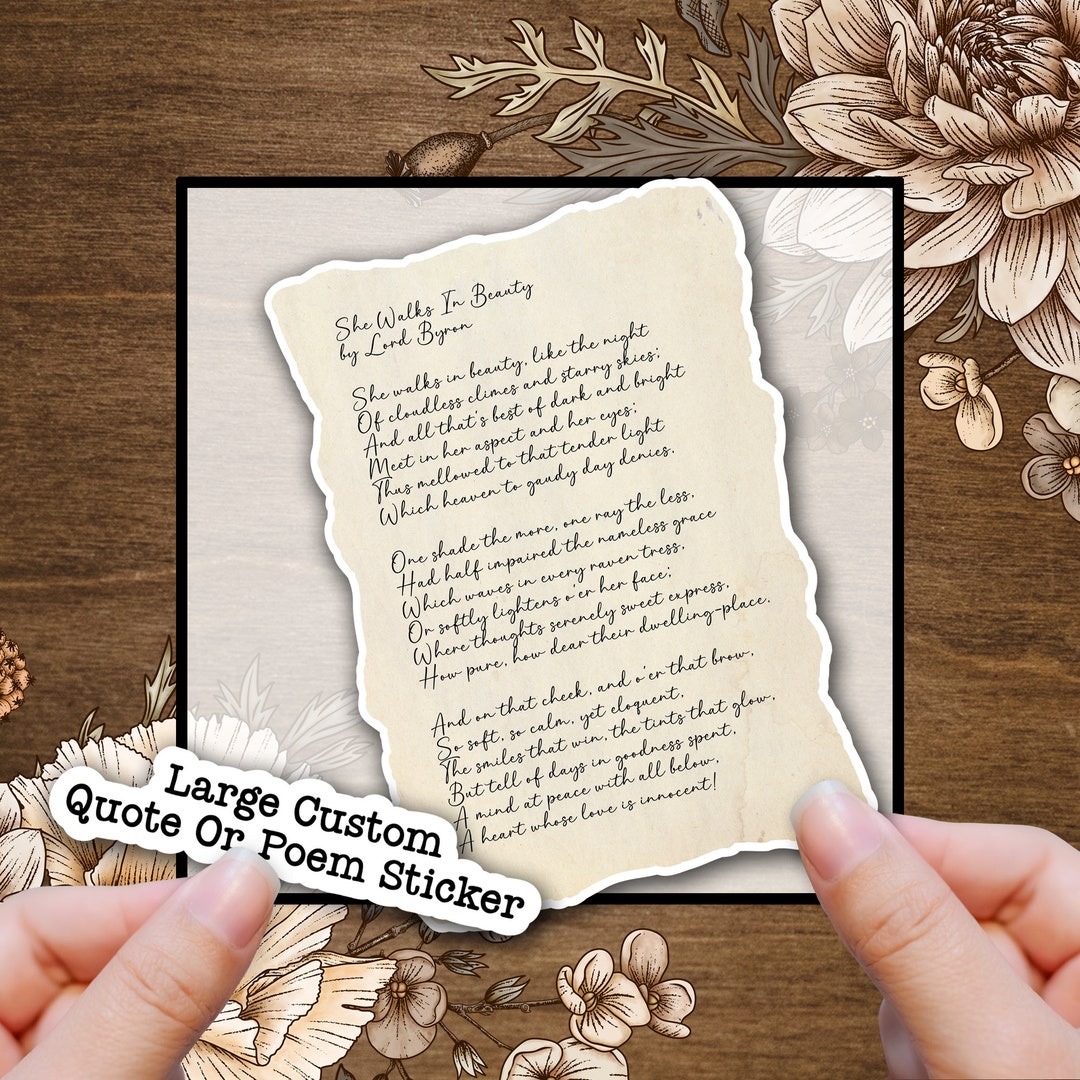 She Walks In Beauty
by Lord Byron
She walks in beauty, like the night
Of cloudless climes and starry skies;
And all that's best of dark and bright
Meet in her aspect and her eyes;
Thus mellowed to that tender light
Which heaven to gaudy day denies.
One shade the more, one ray the less,
Had half impaired the nameless grace
Which waves in every raven tress,
Or softly lightens o'er her face;
Where thoughts serenely sweet express,
How pure, how dear their dwelling-place.
And on that cheek, and o'er that brow,
So soft, so calm, yet eloquent,
The smiles that win, the tints that glow,
But tell of days in goodness spent,
A mind at peace with all below,
A heart whose love is innocent!
Large Custom
Quote Or Poem Sticker